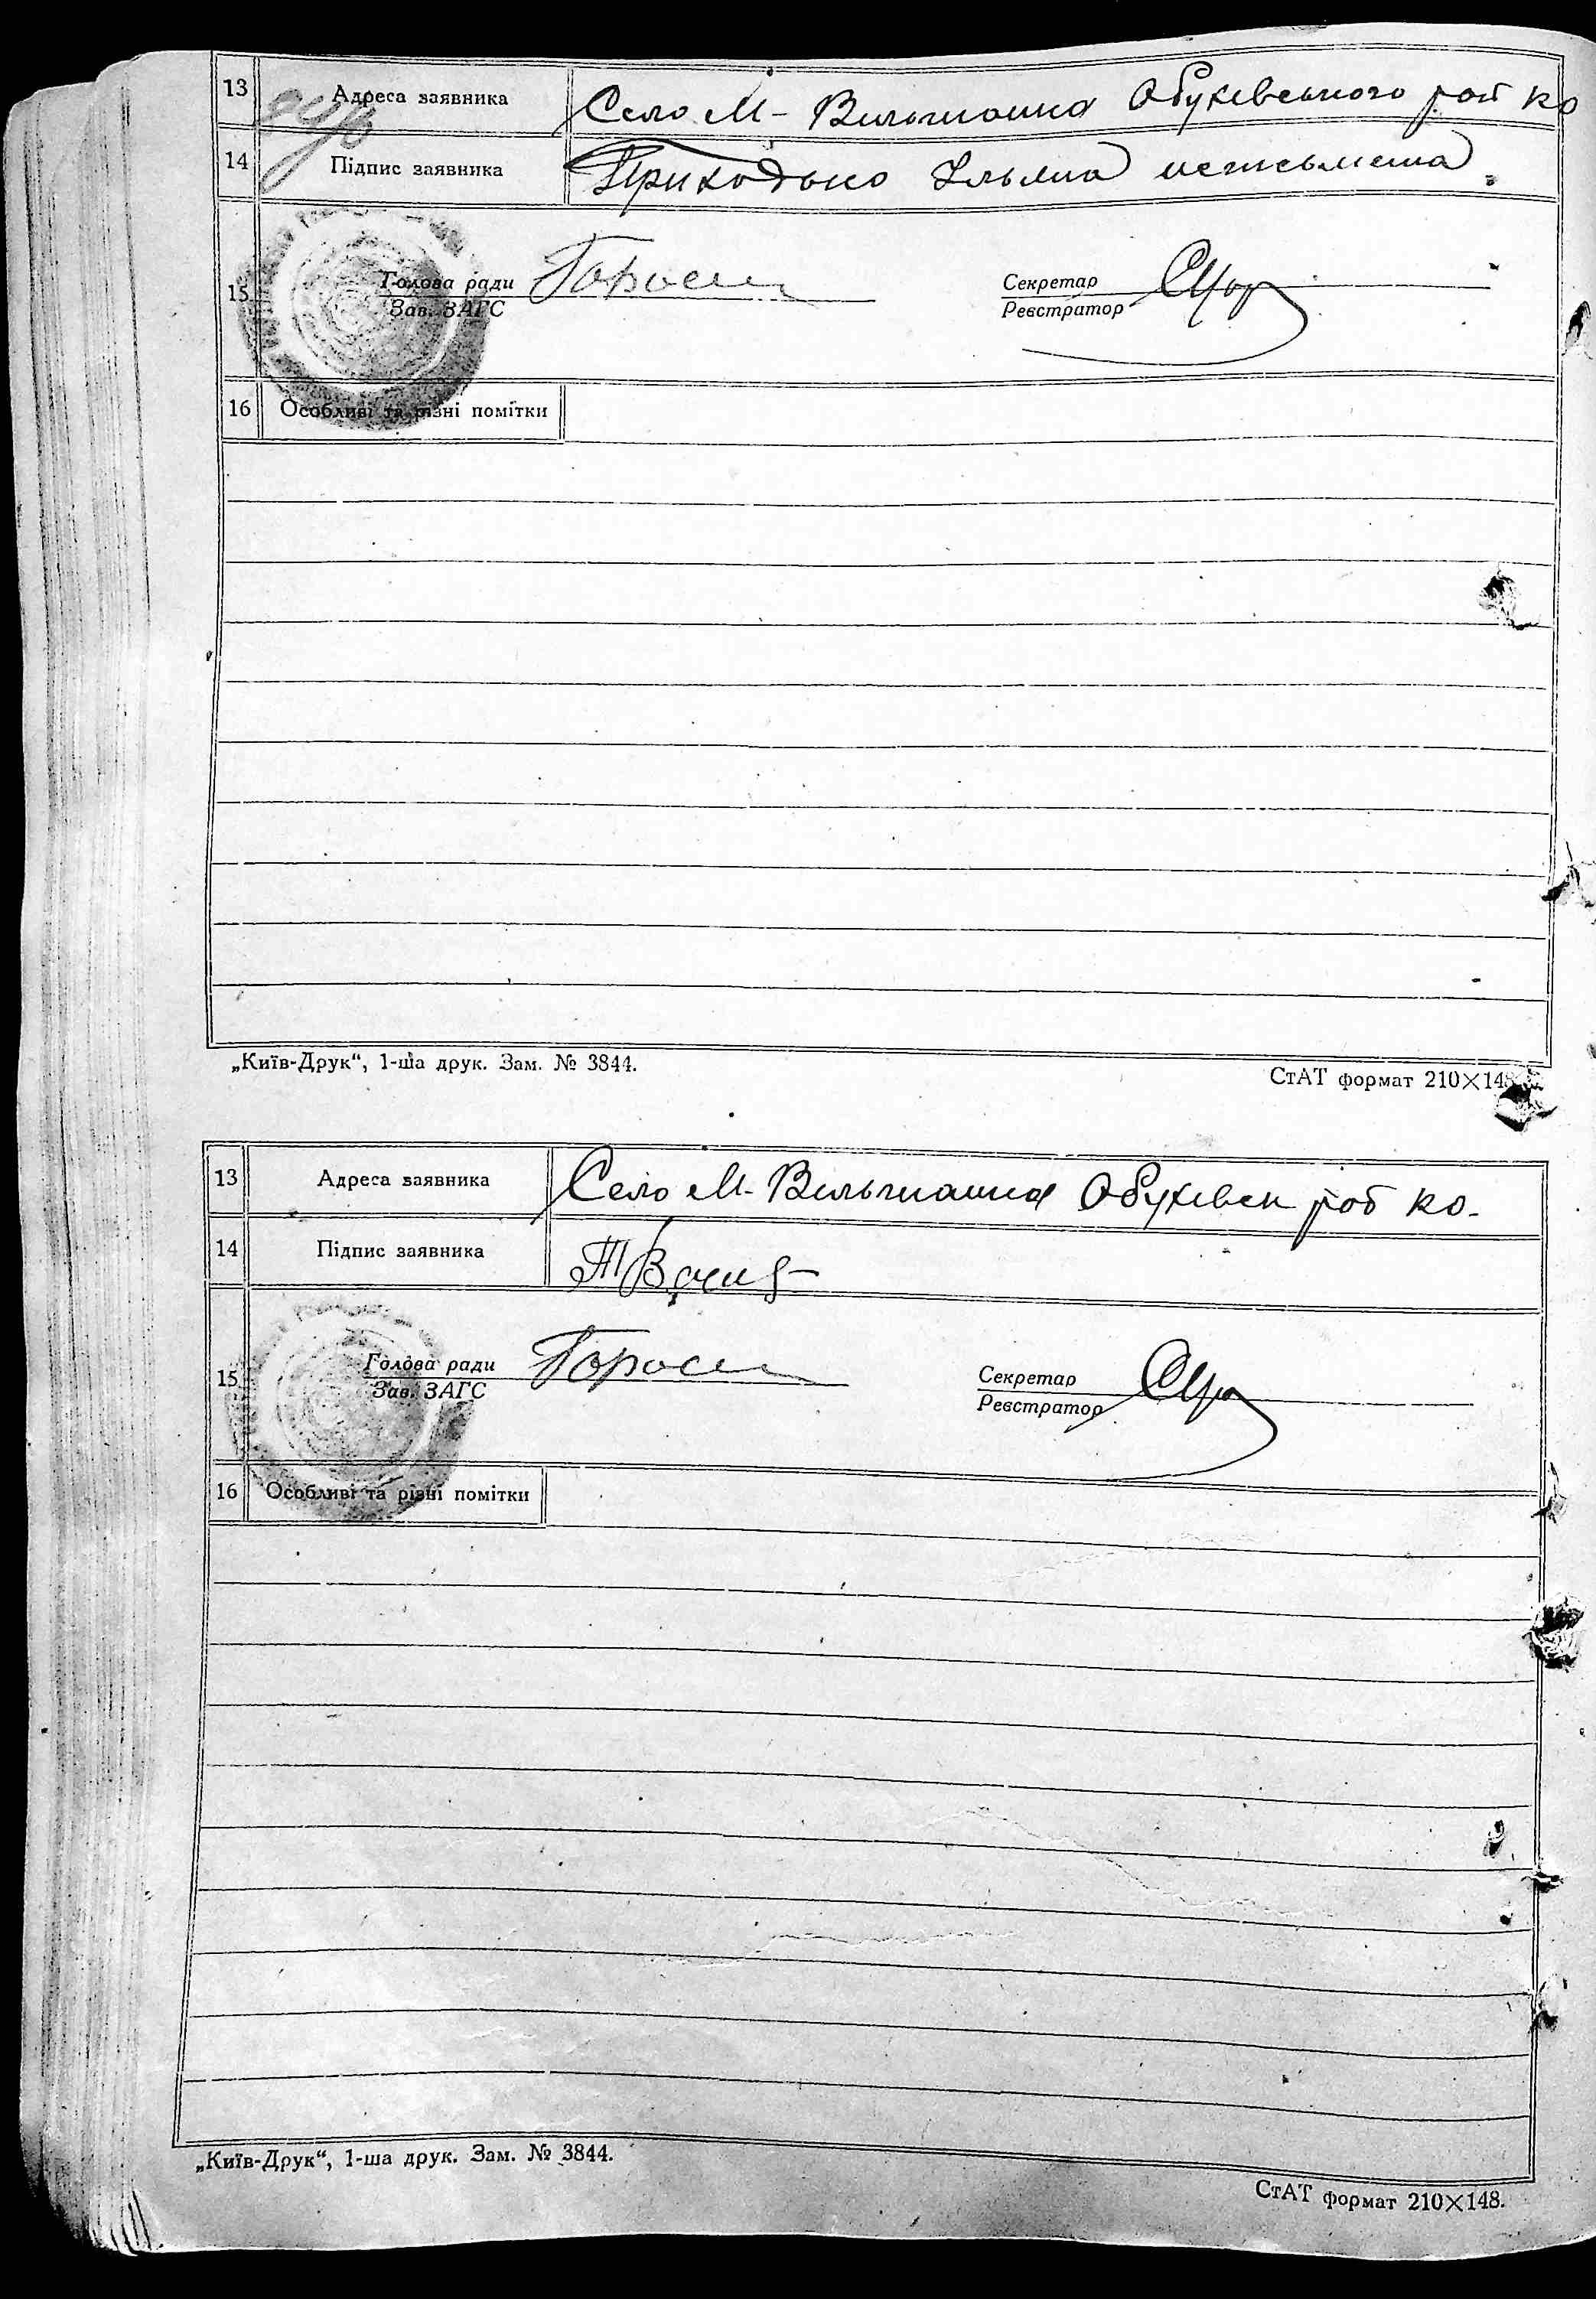 13 Адреса заявника Село М- Вильшанка Обухівського рай ко
14 Підпис заявника Приходько Ульяна неписьмена.
15 Голова ради Секретар
Зав. ЗАГС Реєстратор
16 Особливі та різні помітки
„Київ-Друк“, 1-ша друк. Зам. № 3844.
СтАТ формат 210×148.
13 Адреса заявника Село М- Вильшанка Обухівськ рай ко.
14 Підпис заявника
15 Голова ради Секретар
Зав. ЗАГС Реєстратор
16 Особливі та різні помітки
„Київ-Друк“, 1-ша друк. Зам. № 3844.
СтАТ формат 210×148.